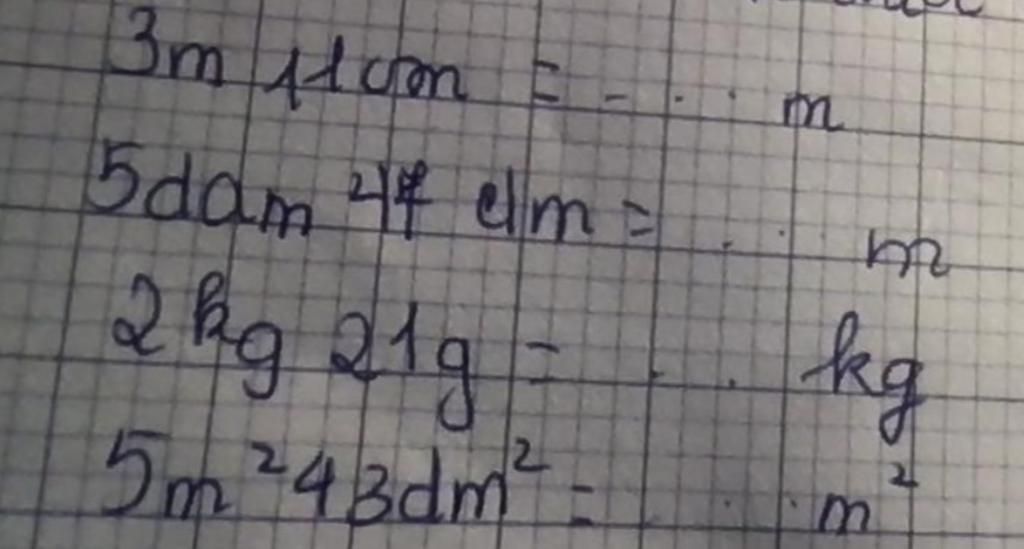 3m 11cm = .... m
5dam 47 dm = ... m
2kg 21g = .. kg
5m²43dm² = ... m²